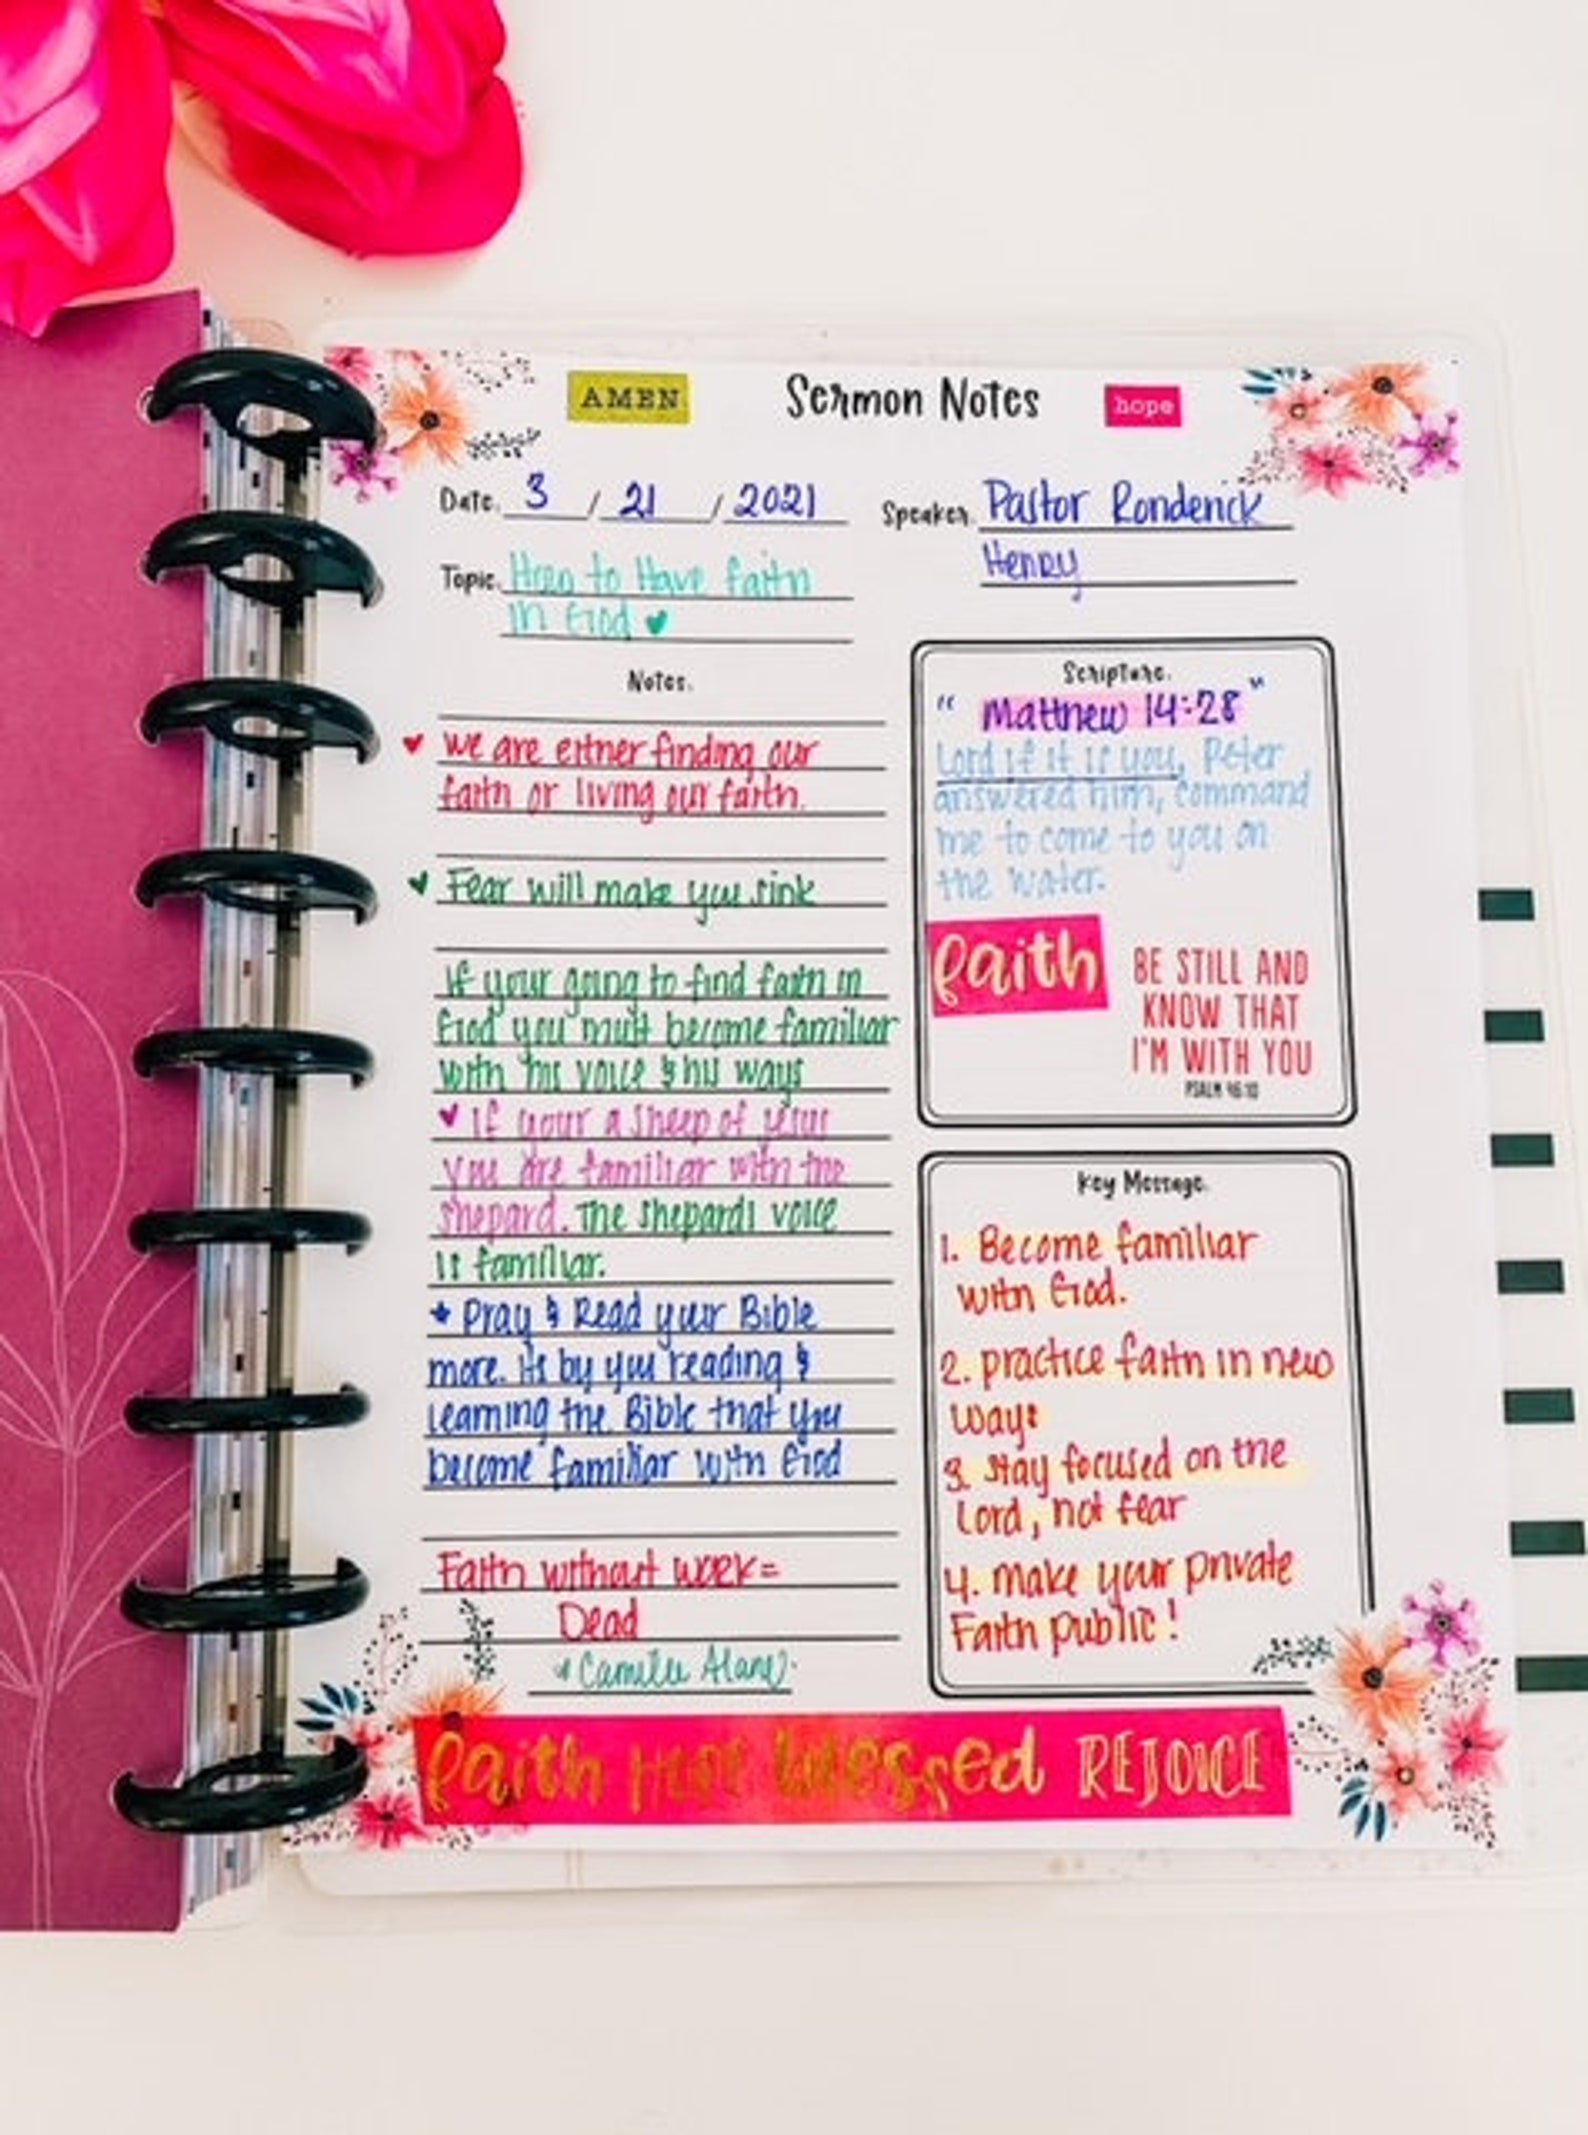 AMEN
Sermon Notes
hope
Date. 3 / 21 / 2021
Speaker. Pastor Ronderick
Henry
Topic. How to Have faith
in God
Notes.
We are either finding our
faith or living our faith.
Fear will make you sink
If your going to find faith in
God you must become familiar
with his voice & his ways
If your a sheep of Jesus
you are familiar with the
shepard. The shepards voice
is familiar.
Pray & Read your Bible
more. Its by you reading &
learning the Bible that you
become familiar with God
Faith without work=
Dead
Scripture.
" Matthew 14:28 "
Lord if it is you, Peter
answered him, command
me to come to you on
the water.
faith
BE STILL AND
KNOW THAT
I'M WITH YOU
PSALM 46:10
Key Message.
1. Become familiar
with God.
2. practice faith in new
ways
3. Stay focused on the
Lord, not fear
4. Make your private
Faith public!
faith HOPE blessed REJOICE